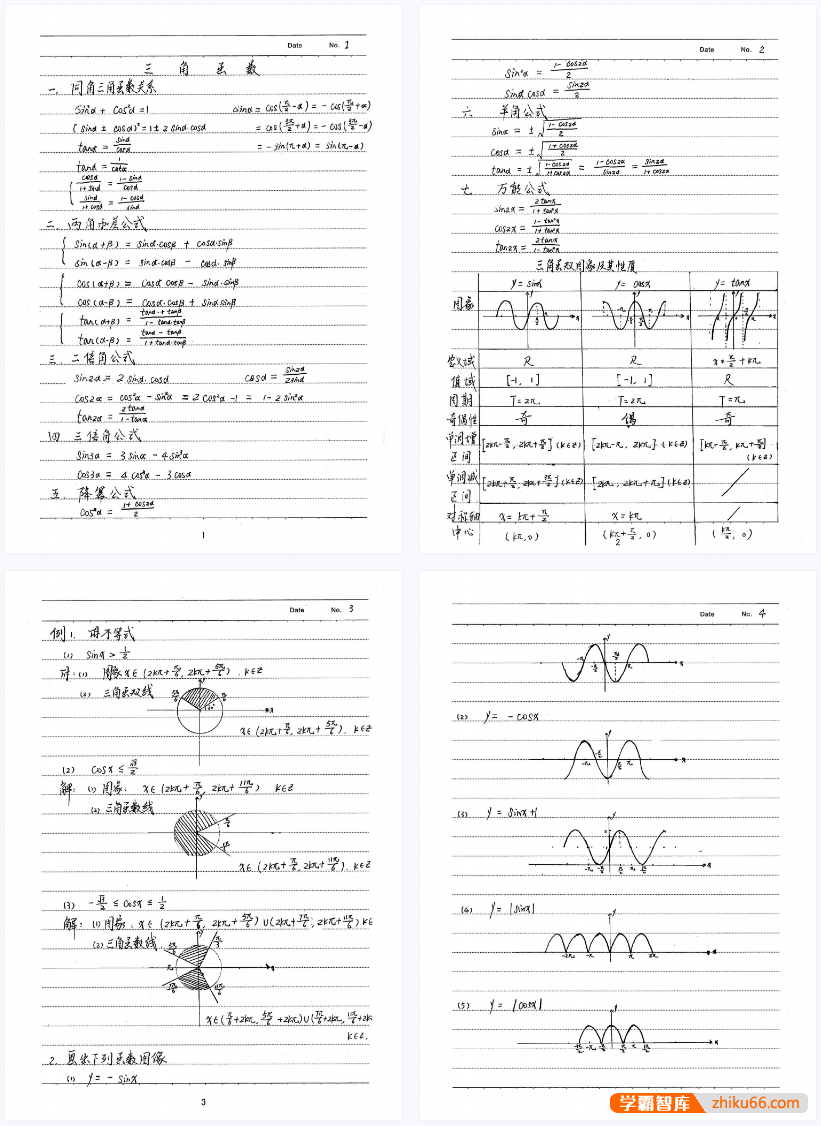 Date No. 1
三 角 函 数
一. 同角三角函数关系
sin²α + cos²α = 1 sinα = cos(π/2 - α) = - cos(π/2 + α)
(sinα ± cosα)² = 1 ± 2 sinα·cosα = cos(3π/2 + α) = - cos(3π/2 - α)
tanα = sinα/cosα = - sin(π+α) = sin(π-α)
tanα = 1/cotα
cosα/(1+sinα) = (1-sinα)/cosα
sinα/(1+cosα) = (1-cosα)/sinα
二. 两角和差公式
sin(α+β) = sinα·cosβ + cosα·sinβ
sin(α-β) = sinα·cosβ - cosα·sinβ
cos(α+β) = cosα·cosβ - sinα·sinβ
cos(α-β) = cosα·cosβ + sinα·sinβ
tan(α+β) = (tanα + tanβ)/(1 - tanα·tanβ)
tan(α-β) = (tanα - tanβ)/(1 + tanα·tanβ)
三. 二倍角公式
sin2α = 2 sinα·cosα cosα = sin2α/2sinα
cos2α = cos²α - sin²α = 2cos²α - 1 = 1 - 2sin²α
tan2α = 2tanα/(1-tanα)
四 三倍角公式
sin3α = 3sinα - 4sin³α
cos3α = 4cos³α - 3cosα
五. 降幂公式
cos²α = (1+cos2α)/2
1
Date No. 2
sin²α = (1-cos2α)/2
sinα cosα = sin2α/2
六 半角公式
sinα = ±√((1-cos2α)/2)
cosα = ±√((1+cos2α)/2)
tanα = ±√((1-cos2α)/(1+cos2α)) = (1-cos2α)/sin2α = sin2α/(1+cos2α)
七. 万能公式
sin2α = 2tanα/(1+tan²α)
cos2α = (1-tan²α)/(1+tan²α)
tan2α = 2tanα/(1-tan²α)
三角函数图象及其性质
y = sinx y = cosx y = tanx
图象
定义域 R R x = π/2 + kπ
值域 [-1, 1] [-1, 1] R
周期 T=2π T=2π T=π
奇偶性 奇 偶 奇
单调增区间 [2kπ-π/2, 2kπ+π/2] (k∈Z) [2kπ-π, 2kπ] (k∈Z) [kπ-π/2, kπ+π/2] (k∈Z)
单调减区间 [2kπ+π/2, 2kπ+3π/2] (k∈Z) [2kπ, 2kπ+π] (k∈Z)
对称轴 x = kπ+π/2 x = kπ
中心 (kπ, 0) (kπ+π/2, 0) (kπ/2, 0)
Date No. 3
例 1. 解不等式
(1) sinx > 1/2
解: (1) 图象 x∈(2kπ+π/6, 2kπ+5π/6). k∈Z
(2) 三角函数线
x∈(2kπ+π/6, 2kπ+5π/6). k∈Z
(2) cosx ≤ √3/2
解: (1) 图象: x∈(2kπ+π/6, 2kπ+11π/6) k∈Z
(2) 三角函数线
x∈(2kπ+π/6, 2kπ+11π/6). k∈Z
(3) -√3/2 ≤ cosx ≤ 1/2
解: (1) 图象: x∈(2kπ+π/6, 2kπ+5π/6)∪(2kπ+7π/6, 2kπ+11π/6) k∈
(2) 三角函数线
x∈(π/6+2kπ, 5π/6+2kπ)∪(7π/6+2kπ, 11π/6+2k
k∈Z.
2. 画出下列函数图像
(1) y = - sinx
3
Date No. 4
(2) y = - cosx
(3) y = sinx+1
(4) y = |sinx|
(5) y = |cosx|
学霸智库 zhiku66.com